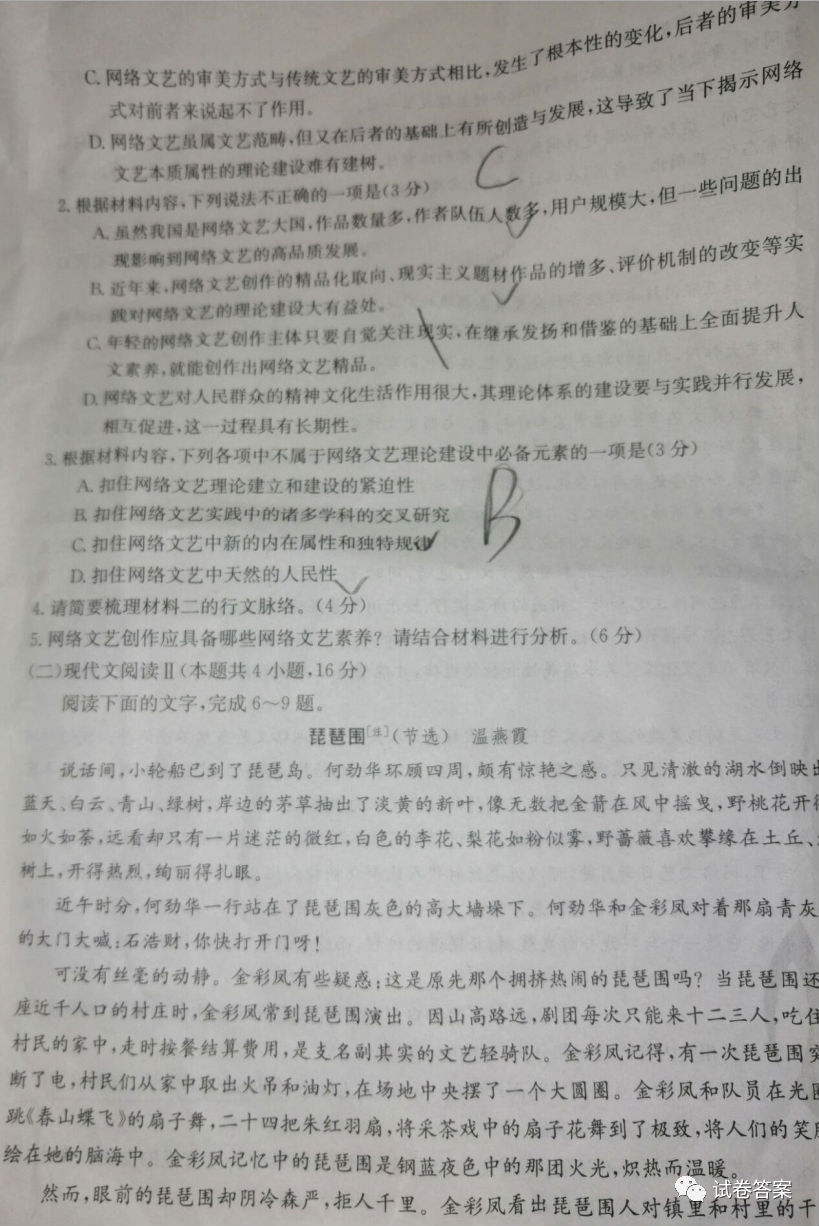 C. 网络文艺的审美方式与传统文艺的审美方式相比,发生了根本性的变化,后者的审美方
式对前者来说起不了作用。
D. 网络文艺虽属文艺范畴,但又在后者的基础上有所创造与发展,这导致了当下揭示网络
文艺本质属性的理论建设难有建树。
C
2. 根据材料内容,下列说法不正确的一项是(3分)
A. 虽然我国是网络文艺大国,作品数量多,作者队伍人数多,用户规模大,但一些问题的出
现影响到网络文艺的高品质发展。
B. 近年来,网络文艺创作的精品化取向、现实主义题材作品的增多、评价机制的改变等实
践对网络文艺的理论建设大有益处。
C. 年轻的网络文艺创作主体只要自觉关注现实,在继承发扬和借鉴的基础上全面提升人
文素养,就能创作出网络文艺精品。
D. 网络文艺对人民群众的精神文化生活作用很大,其理论体系的建设要与实践并行发展,
相互促进,这一过程具有长期性。
3. 根据材料内容,下列各项中不属于网络文艺理论建设中必备元素的一项是(3分)
A. 扣住网络文艺理论建立和建设的紧迫性
B. 扣住网络文艺实践中的诸多学科的交叉研究
B
C. 扣住网络文艺中新的内在属性和独特规律
D. 扣住网络文艺中天然的人民性
4. 请简要梳理材料二的行文脉络。(4分)
5. 网络文艺创作应具备哪些网络文艺素养?请结合材料进行分析。(6分)
(二)现代文阅读Ⅱ(本题共4小题,16分)
阅读下面的文字,完成6~9题。
琵琶围[注](节选) 温燕霞
说话间,小轮船已到了琵琶岛。何劲华环顾四周,颇有惊艳之感。只见清澈的湖水倒映出
蓝天、白云、青山、绿树,岸边的茅草抽出了淡黄的新叶,像无数把金箭在风中摇曳,野桃花开得
如火如荼,远看却只有一片迷茫的微红,白色的李花、梨花如粉似雾,野蔷薇喜欢攀缘在土丘、
树上,开得热烈,绚丽得扎眼。
近午时分,何劲华一行站在了琵琶围灰色的高大墙垛下。何劲华和金彩凤对着那扇青灰
的大门大喊:石浩财,你快打开门呀!
可没有丝毫的动静。金彩凤有些疑惑:这是原先那个拥挤热闹的琵琶围吗?当琵琶围还
座近千人口的村庄时,金彩凤常到琵琶围演出。因山高路远,剧团每次只能来十二三人,吃住
村民的家中,走时按餐结算费用,是支名副其实的文艺轻骑队。金彩凤记得,有一次琵琶围突
断了电,村民们从家中取出火吊和油灯,在场地中央摆了一个大圆圈。金彩凤和队员在光圈
跳《春山蝶飞》的扇子舞,二十四把朱红羽扇,将采茶戏中的扇子花舞到了极致,将人们的笑脸
绘在她的脑海中。金彩凤记忆中的琵琶围是钢蓝夜色中的那团火光,炽热而温暖。
然而,眼前的琵琶围却阴冷森严,拒人千里。金彩凤看出琵琶围人对镇里和村里的干
试卷答案